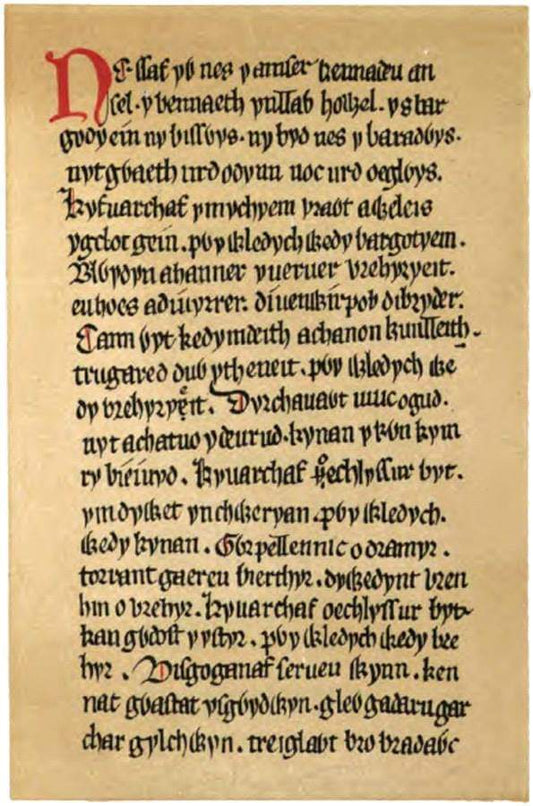 Nessaf yỽ nes y amser kennadeu an
sel. y bennaeth ynllaỽ howel. ys bar
ein ny ny byd nes y baradỽys.
nyt gỽaeth urd odynn noc urd oeglỽys.
Kyfuarchaf ymychyem vraỽt a weleis
ygclot gein. pỽy wledych wedy bargotyein.
Blỽydyn ahanner yueruer vrehyryeit.
euhoes adiuyrrer. diuenwir pob dibryder.
Cann ỽyt kedymdeith achanon
trugared duỽ ytheneit. pỽy wledych we
dy vrehyryeit. Dyrchauaỽt unucogud.
nyt achatuo ydeurud. kynan ykỽn kym
ry bieiuyd. Kyuarchaf oechlyssur byt.
ymdywet ynchweryan. pỽy wledych.
wedy kynan. Gỽr pellennic o dramyr.
torrant gaereu vierthyr. dywedynt vren
hin o vrehyr. kyuarchaf oechlyssur byt
kan gỽdost y ystyr. pỽy wledych wedy bre
hyr. Disgoganaf serueu wynn. ken
nat gỽastat ysgỽydwyn. gleỽ gadarn gar
char gylchwyn. treiglaỽt bro bradaỽc